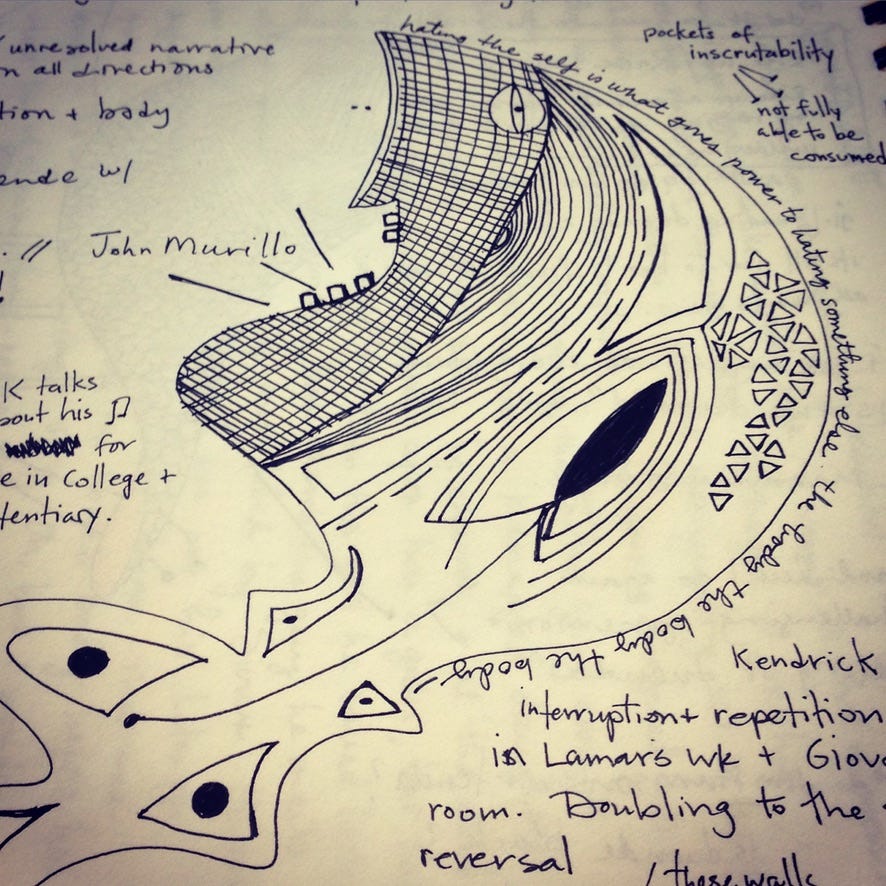 unresolved narrative
n all directions
tion + body
ende w/
John Murillo
K talks
bout his
for
e in College +
tentiary.
hating the self is what gives power to hating something else. the body the body the body
pockets of
inscrutability
not fully
able to be
consumed
Kendrick
interruption + repetition
in Lamar's wk + Giov
room. Doubling to the
reversal
/ these walls